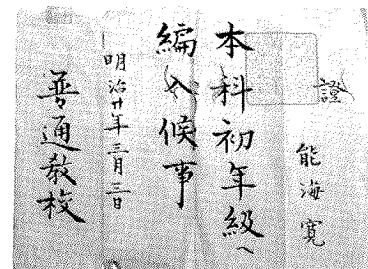 證
能海寛
本科初年級へ
編入候事
明治廿年三月三日
普通教校